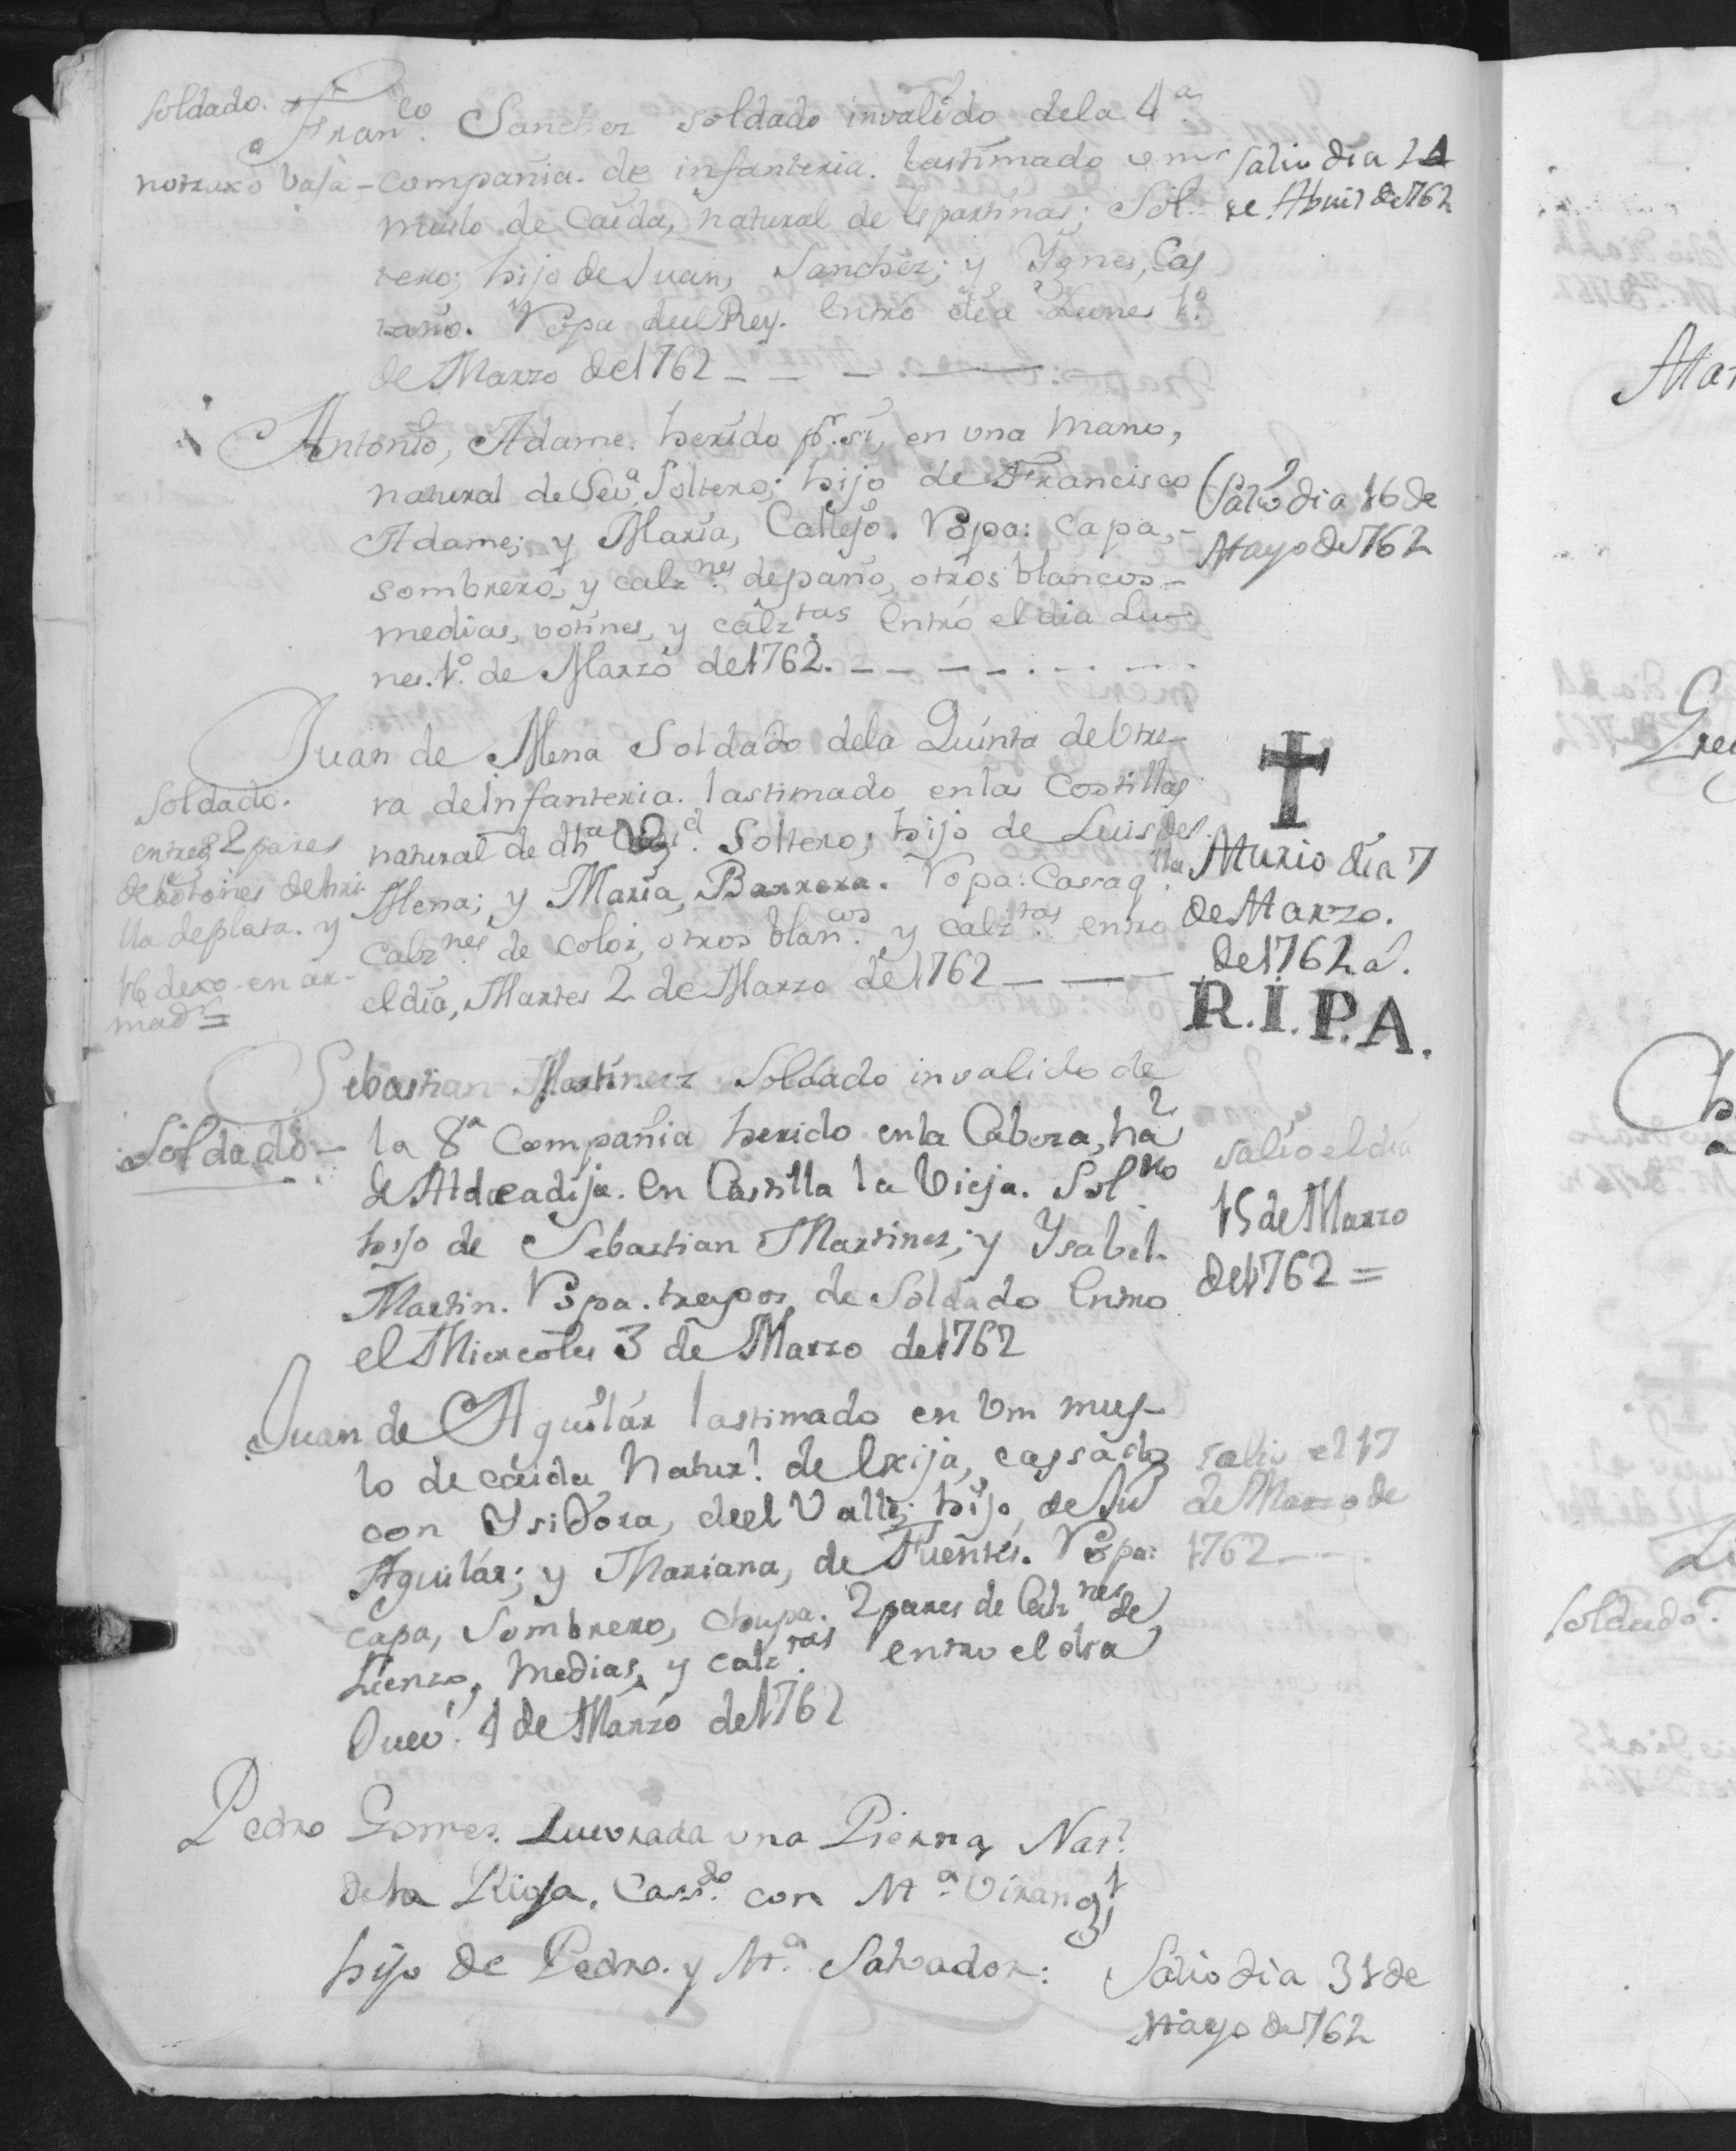 Soldado.
Franco. Sanchez soldado invalido dela 4a.
notraxo vaja - compañia. de infanteria. lastimado en
muslo de Caida, natural de Espartinas; Sol-
tero; hijo de Juan, Sanchez; y Ygnes, Cas
taño. Ropa del Rey. Entró dia Lunes 1o.
de Marzo de 1762 - - -
Salio dia
de Abril de 762
Antonio, Adame. herido pr. si, en una Mano,
natural de Seva. Soltero; hijo de Francisco
Adame; y Maria, Callejo. Ropa: Capa, -
sombrero, y calznes. depaño, otros blancos -
medias, votines, y calztas Entró el dia Lu-
nes. 1o. de Marzo de 1762. - - - -
Salió dia 16 de
Mayo de 762
Juan de Mena Soldado dela Quinta de Utre-
ra de Infanteria. lastimado enlas Costillas
natural de dha. Soltero; hijo de Luis de
Mena; y Maria, Barrera. Ropa: Casaqlla.
Calznes. de color, otros blancos. y calztas. entro
el dia, Martes 2 de Marzo de 1762 - - -
Soldado.
entregó 2 pares
de botones de bri-
lla deplata. y
dexo en ar-
madr =
Murio dia 7
de Marzo.
de 1762 a.
R.I.P.A.
Sebastian Martinez Soldado invalido de
Soldado - la 8a Compañia herido enla Cabeza, na
de Aldeadija. en Castilla la Vieja. Solro
hijo de Sebastian Martinez; y Ysabel
Martin. Ropa. trapos de Soldado Entro
el Miercoles 3 de Marzo de 1762
salio el dia
15 de Marzo
de 1762 =
Juan de Aguilár lastimado en Um mus-
lo de cáida, Natural. de Exija, cassado
con Ysidora, deel Valle; hijo de Ju
Aguilár; y Mariana, de Fuentes. Ropa:
Capa, Sombrero, chupa. 2 pares de Calznes de
Lienzo, Medias, y calztas. entro el dia
Juev. 4 de Marzo de 1762
salio el 17
de Marzo de
1762 - -
Pedro Gomez. Quevrada una Pierna, Natl.
dela Rioja. Cassdo. con Ma.
hijo de Pedro. y Ma. Salvador:
Salio dia 31 de
Mayo de 762
Soldado.